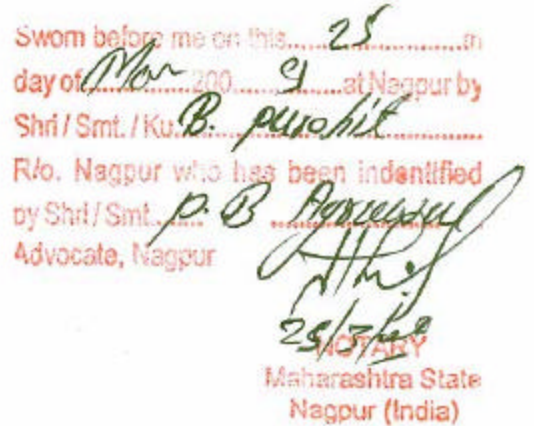 Sworn before me on this......25..............th
day of Mar 200 9 at Nagpur by
Shri / Smt. / Ku. B. purohit
R/o. Nagpur who has been indentified
by Shri / Smt. P. B Agrawal
Advocate, Nagpur
25/3/
NOTARY
Maharashtra State
Nagpur (India)